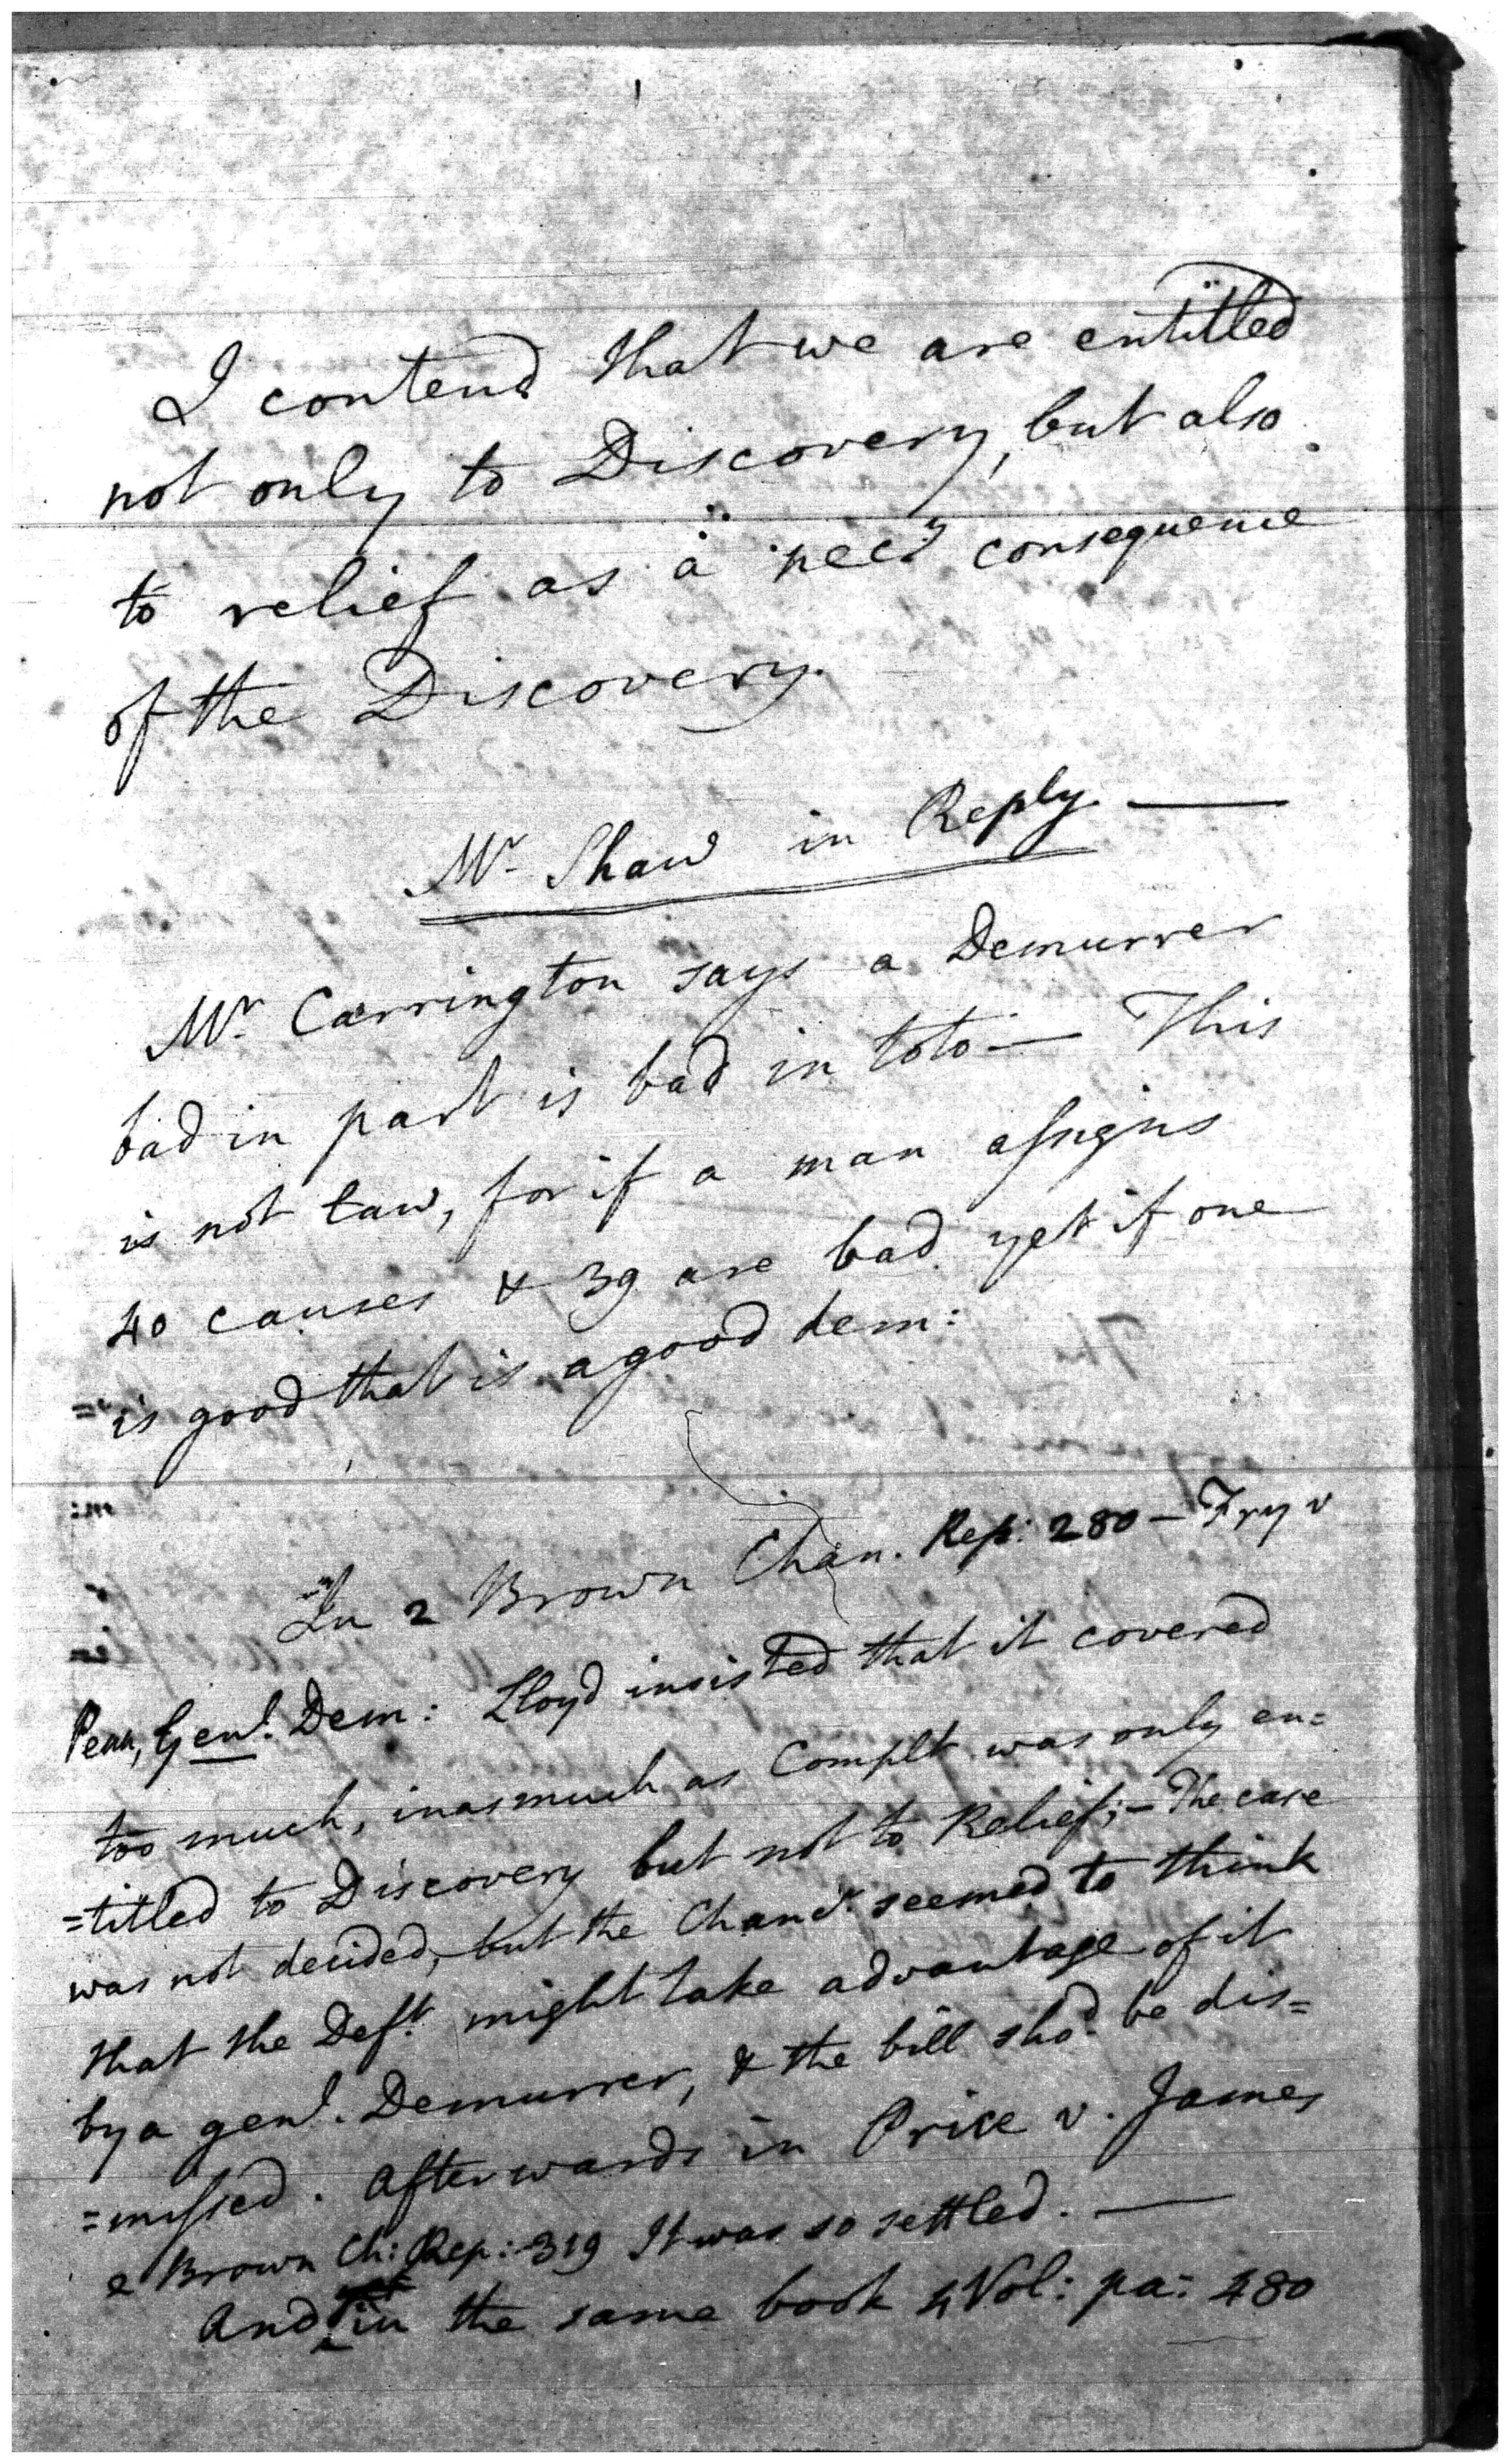 I contend that we are entitled
not only to Discovery, but also
to relief as a necy consequence
of the Discovery.
Mr Shaw in Reply. —
Mr Carrington says a Demurrer
bad in part is bad in toto — This
is not law, for if a man assigns
40 causes & 39 are bad yet if one
is good that is a good dem:
In 2 Brown Chan. Rep: 280 — Fry v
Penn, Genl. Dem: Lloyd insisted that it covered
too much, inasmuch as Complt was only en=
=titled to Discovery but not to Relief; — The case
was not decided, but the Chanr. seemed to think
that the Deft. might take advantage of it
by a genl. Demurrer, & the bill shod. be dis=
=missed. Afterwards in Price v. James
2 Brown Ch: Rep: 319 It was so settled. —
And in the same book 4 Vol: pa: 480